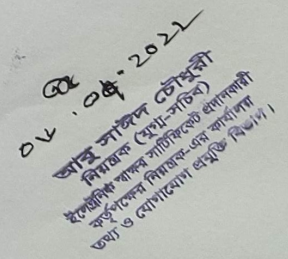 ০৮.০৫.2022
আবু সাঈদ চৌধুরী
নিয়ন্ত্রক (যুগ্ম-সচিব)
ইলেক্ট্রনিক স্বাক্ষর সার্টিফিকেট প্রদানকারী
কর্তৃপক্ষের নিয়ন্ত্রক-এর কার্যালয়
তথ্য ও যোগাযোগ প্রযুক্তি বিভাগ।